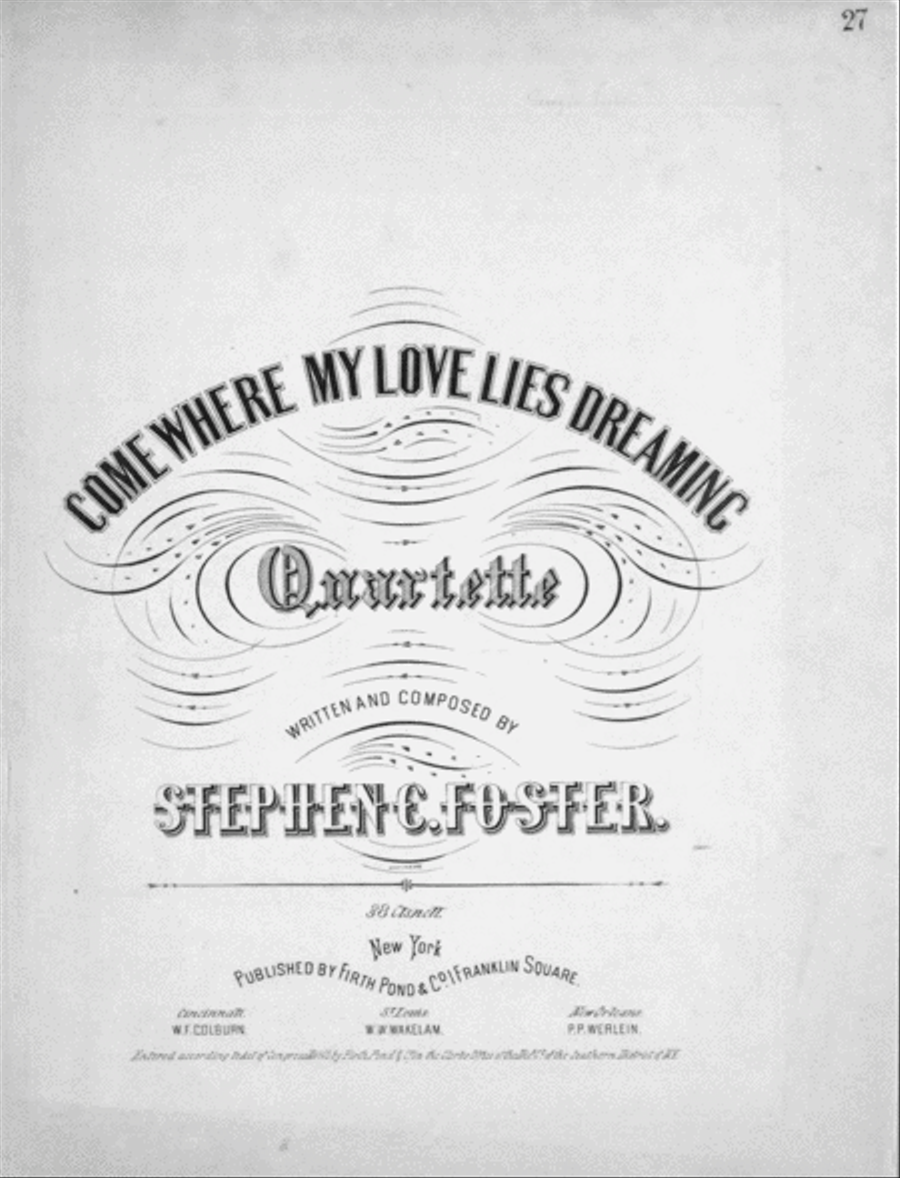 27
COME WHERE MY LOVE LIES DREAMING
Quartette
WRITTEN AND COMPOSED BY
STEPHEN C. FOSTER.
New York
PUBLISHED BY FIRTH POND & CO. 1 FRANKLIN SQUARE.
Cincinnati. St. Louis New Orleans
W.F. COLBURN. W.W. WAKELAM. P.P. WERLEIN.
Entered according to Act of Congress by Firth, Pond & Co. in the Clerks Office of the of the Southern District of N.Y.